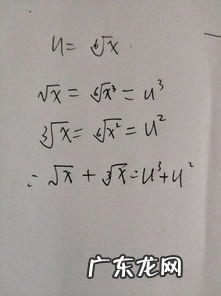 u = ⁶√x
√x = ⁶√x³ = u³
³√x = ⁶√x² = u²
∴ √x + ³√x = u³ + u²
广东龙网